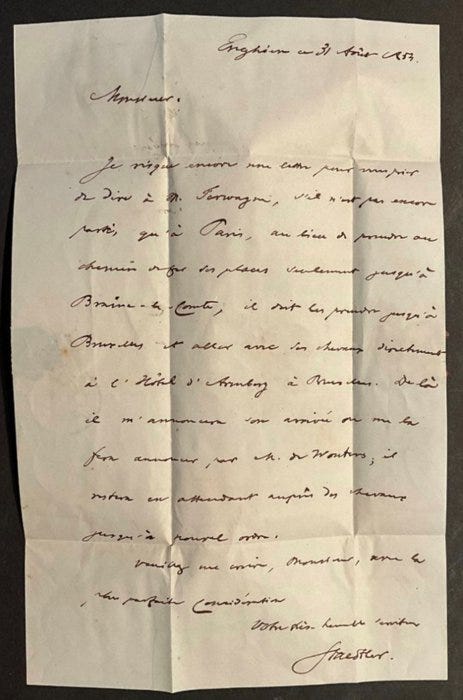 Enghien ce 31 Août 1853.
Monsieur.
Je risque encore une lettre pour vous prier
de dire à M. Ferwagne, s'il n'est pas encore
parti, qu'à Paris, au lieu de prendre au
chemin de fer ses places seulement jusqu'à
Braîne-le-Comte, il doit les prendre jusqu'à
Bruxelles et aller avec ses chevaux directement
à l'Hôtel d'Aremberg à Bruxelles. De là
il m'annoncera son arrivée ou me la
fera annoncer par M. de Wouters; il
restera en attendant auprès des chevaux
jusqu'à nouvel ordre.
Veuillez me croire, Monsieur, avec la
plus parfaite Considération
Votre très humble serviteur
Staedtler.